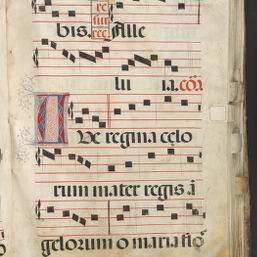 re
sur
bis. rec Alle
lu ia. cōā
Ave regina celo
rum mater regis ā
gelorum o maria flo